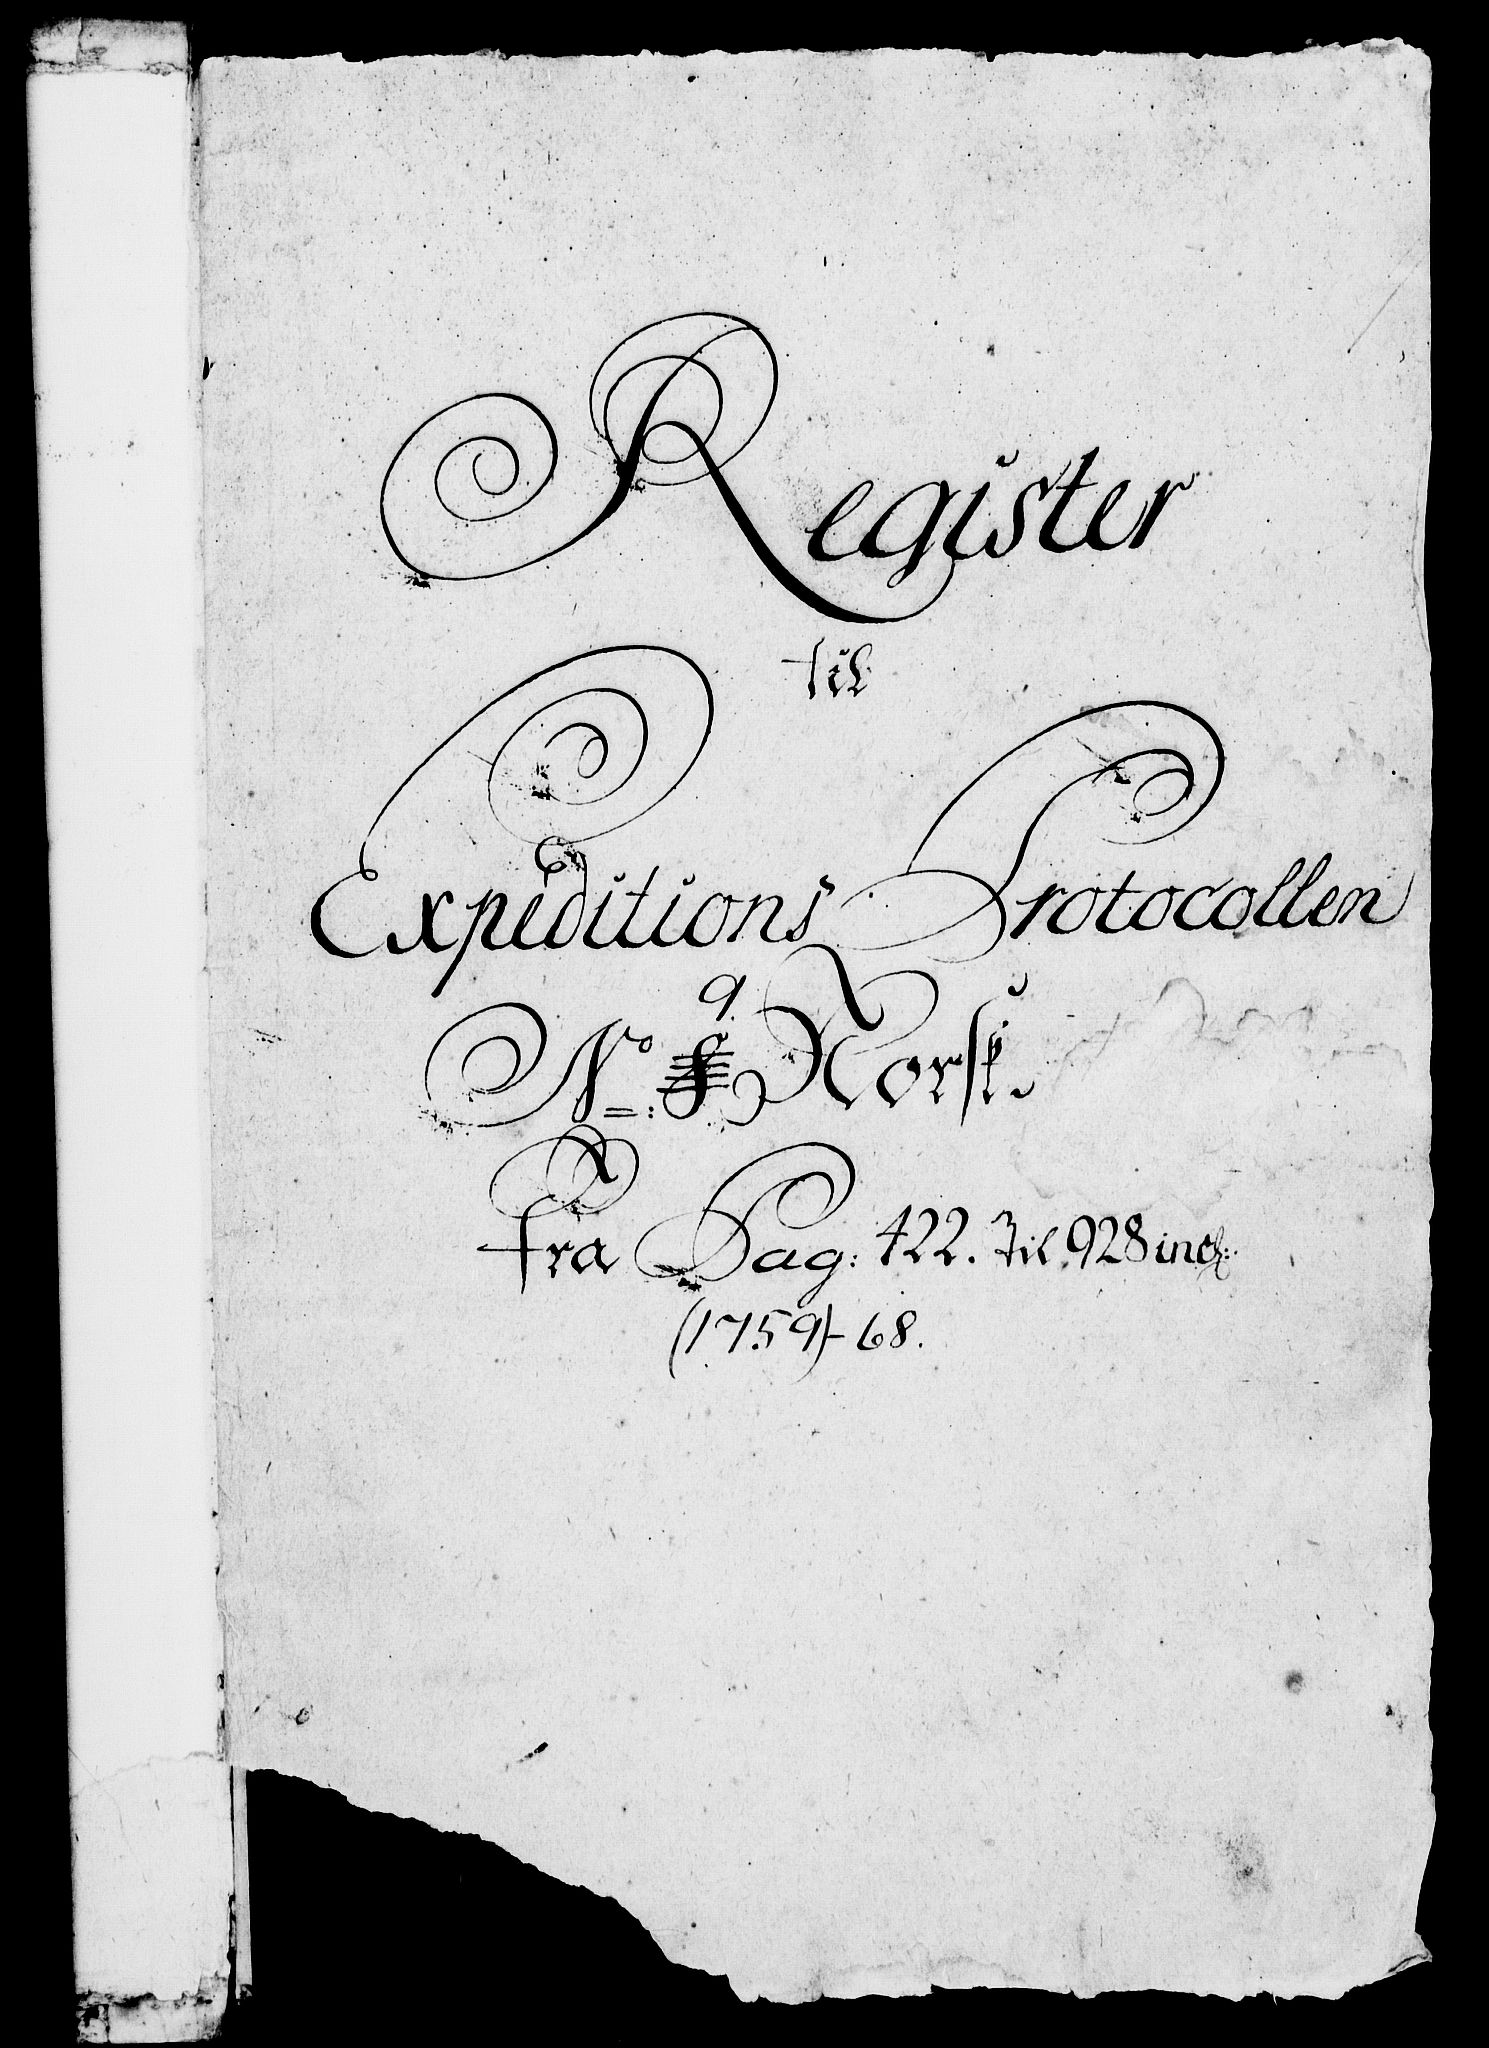 Register
til
Expeditions Protocollen
9
No: Norsk.
fra Pag: 422. til 928 incl:
(1759)-68.